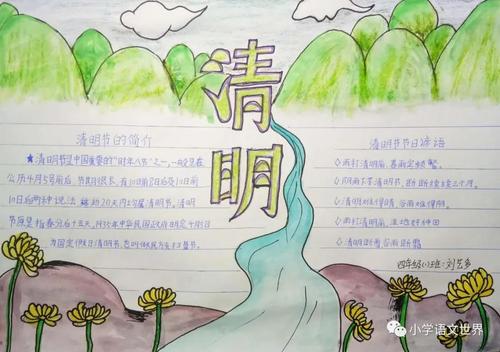 清明
清明节的简介
★清明节是中国重要的"时年八节"之一,一般是在
公历4月5号前后,节期很长,有10日前8日后及10日前
10日后两种说法,这近20天内均属清明节。清明
节原是指春分后十五天,1935年中华民国政府明定4月5日
为国定假日清明节,也叫做民族扫墓节。
清明节节日谚语
◇雨打清明前,春雨定频繁。
◇阴雨下了清明节,断断续续三个月。
◇清明难得晴,谷雨难得阴。
◇雨打清明前,洼地好种田
◇清明断雪谷雨断霜
四年级(1)班:刘艺多
小学语文世界